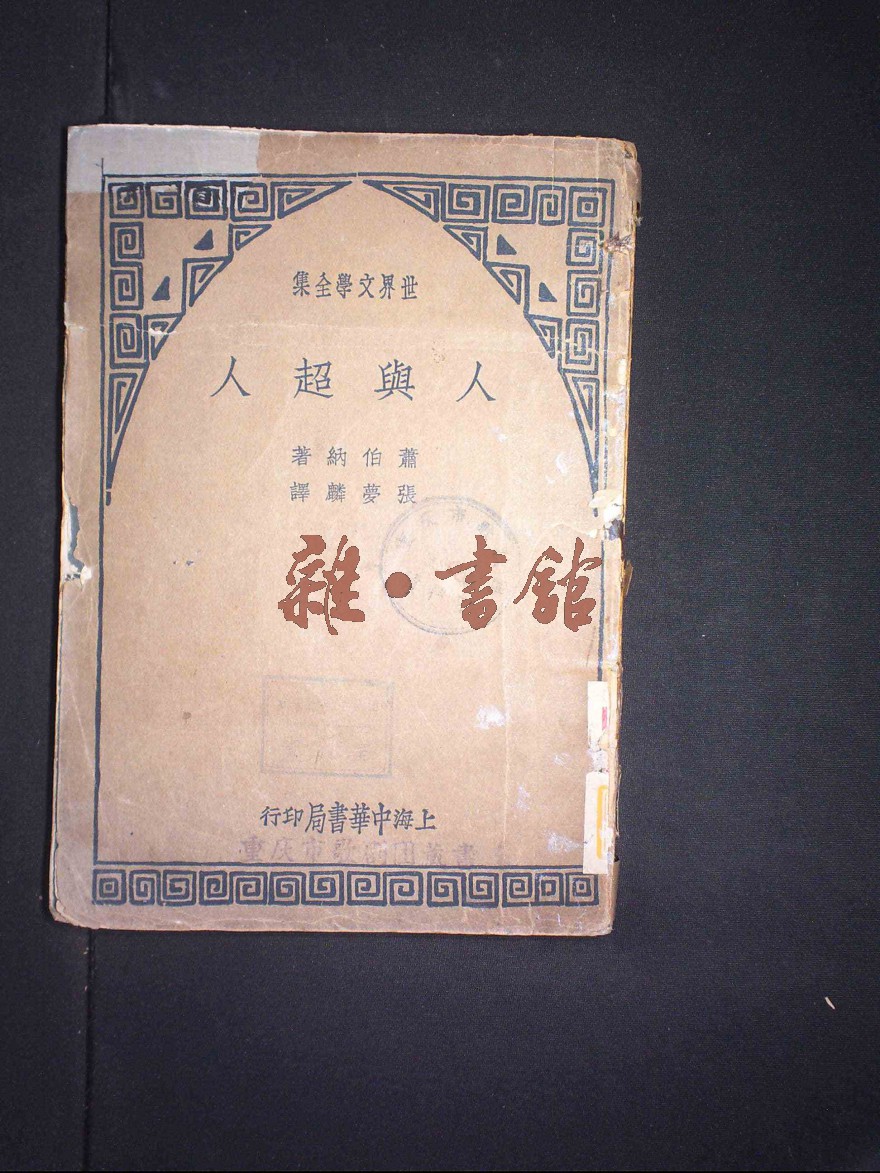 世界文學全集
人與超人
蕭伯納著
張夢麟譯
雜·書館
上海中華書局印行